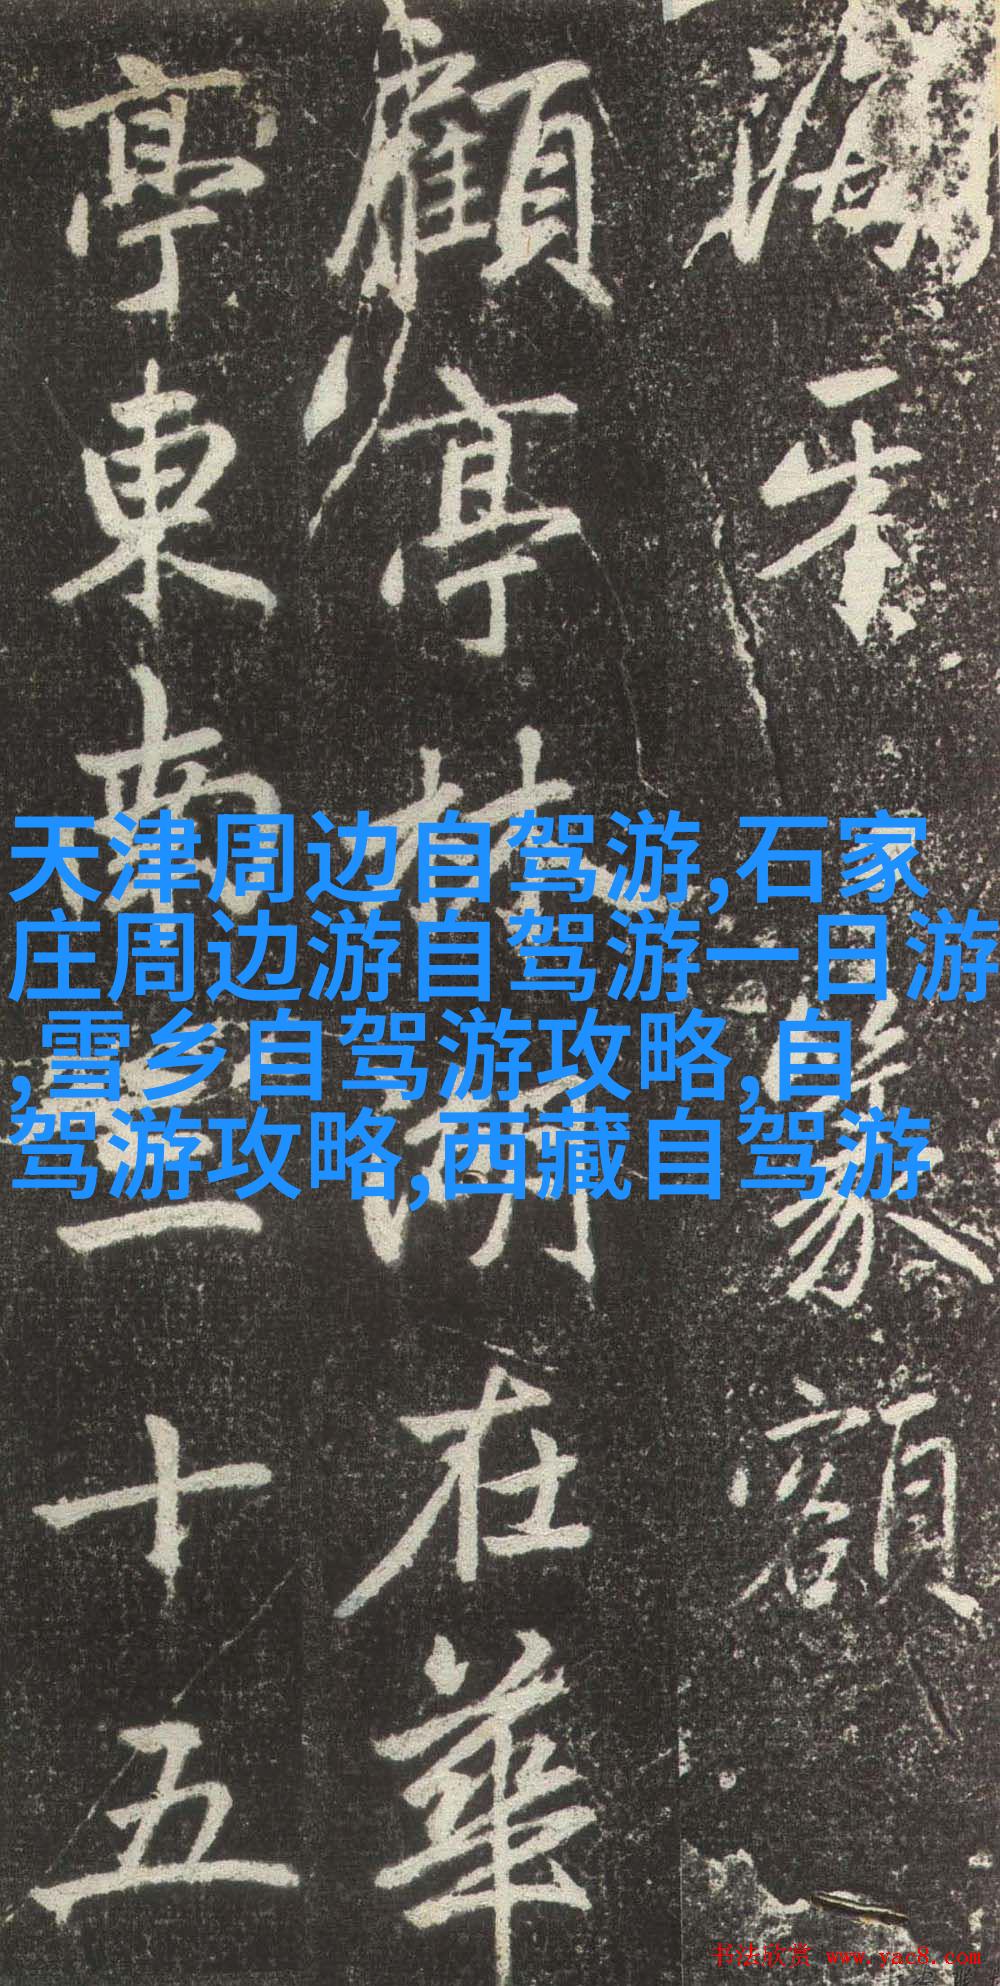 篆額
顧亭林湖在華
亭東南三十五
天津周边自驾游,石家
庄周边游自驾游一日游
,雪乡自驾游攻略,自
驾游攻略,西藏自驾游
书法欣赏 www.yac8.com